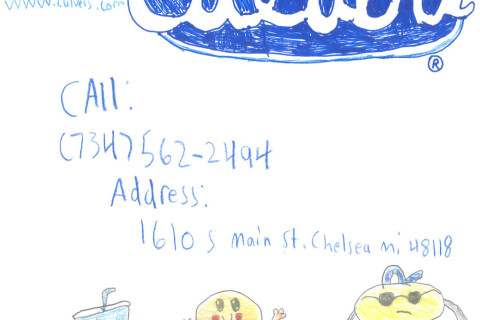 www.culvers.com
Culver's
®
CAll:
(734) 562-2494
Address:
1610 S Main St. Chelsea mi 48118